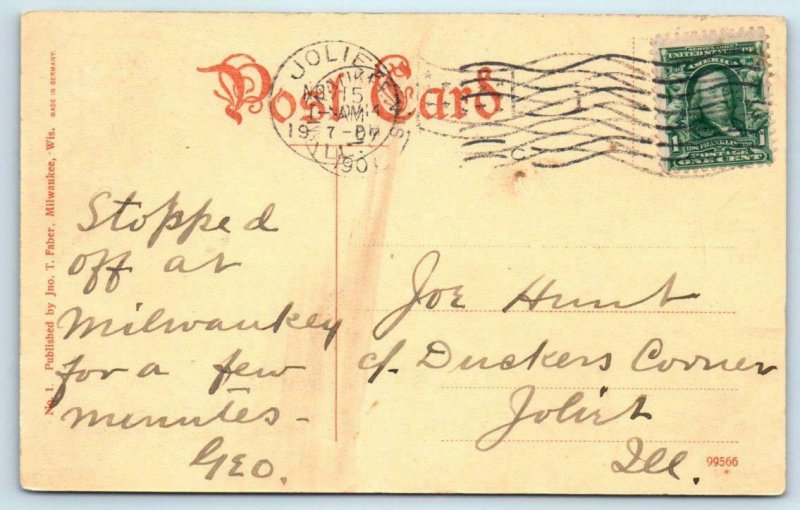 Post Card
JOLIET
NOV 15
AM
ILL.
SERIES 1902
UNITED STATES
AMERICA
1 1
FRANKLIN
POSTAGE
ONE CENT
No. 1. Published by Jno. T. Faber, Milwaukee, Wis. MADE IN GERMANY.
Stopped
off at
Milwaukey
for a few
minutes -
Geo.
Joe Hunt
c/- Duckers Corner
Joliet
Ill.
99566